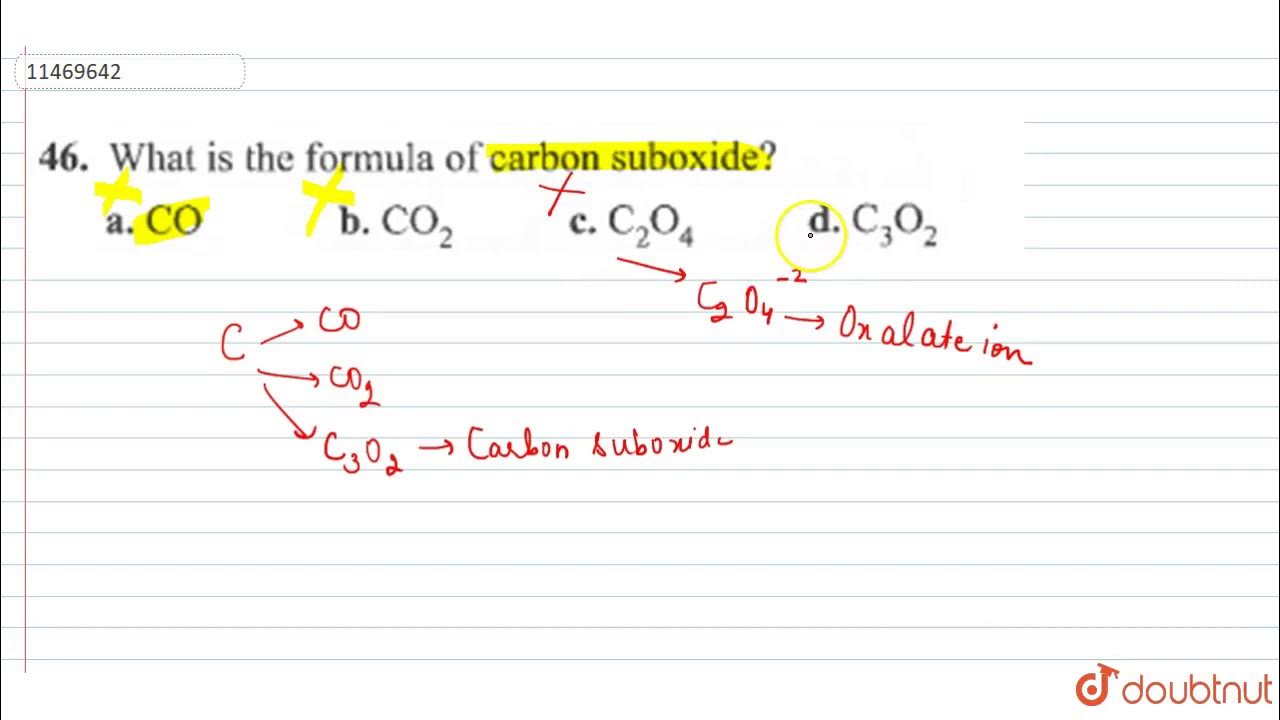 11469642
46. What is the formula of carbon suboxide?
a. CO b. CO₂ c. C₂O₄ d. C₃O₂
C₂O₄⁻² → Oxalate ion
C → CO
→ CO₂
→ C₃O₂ → Carbon suboxide
doubtnut